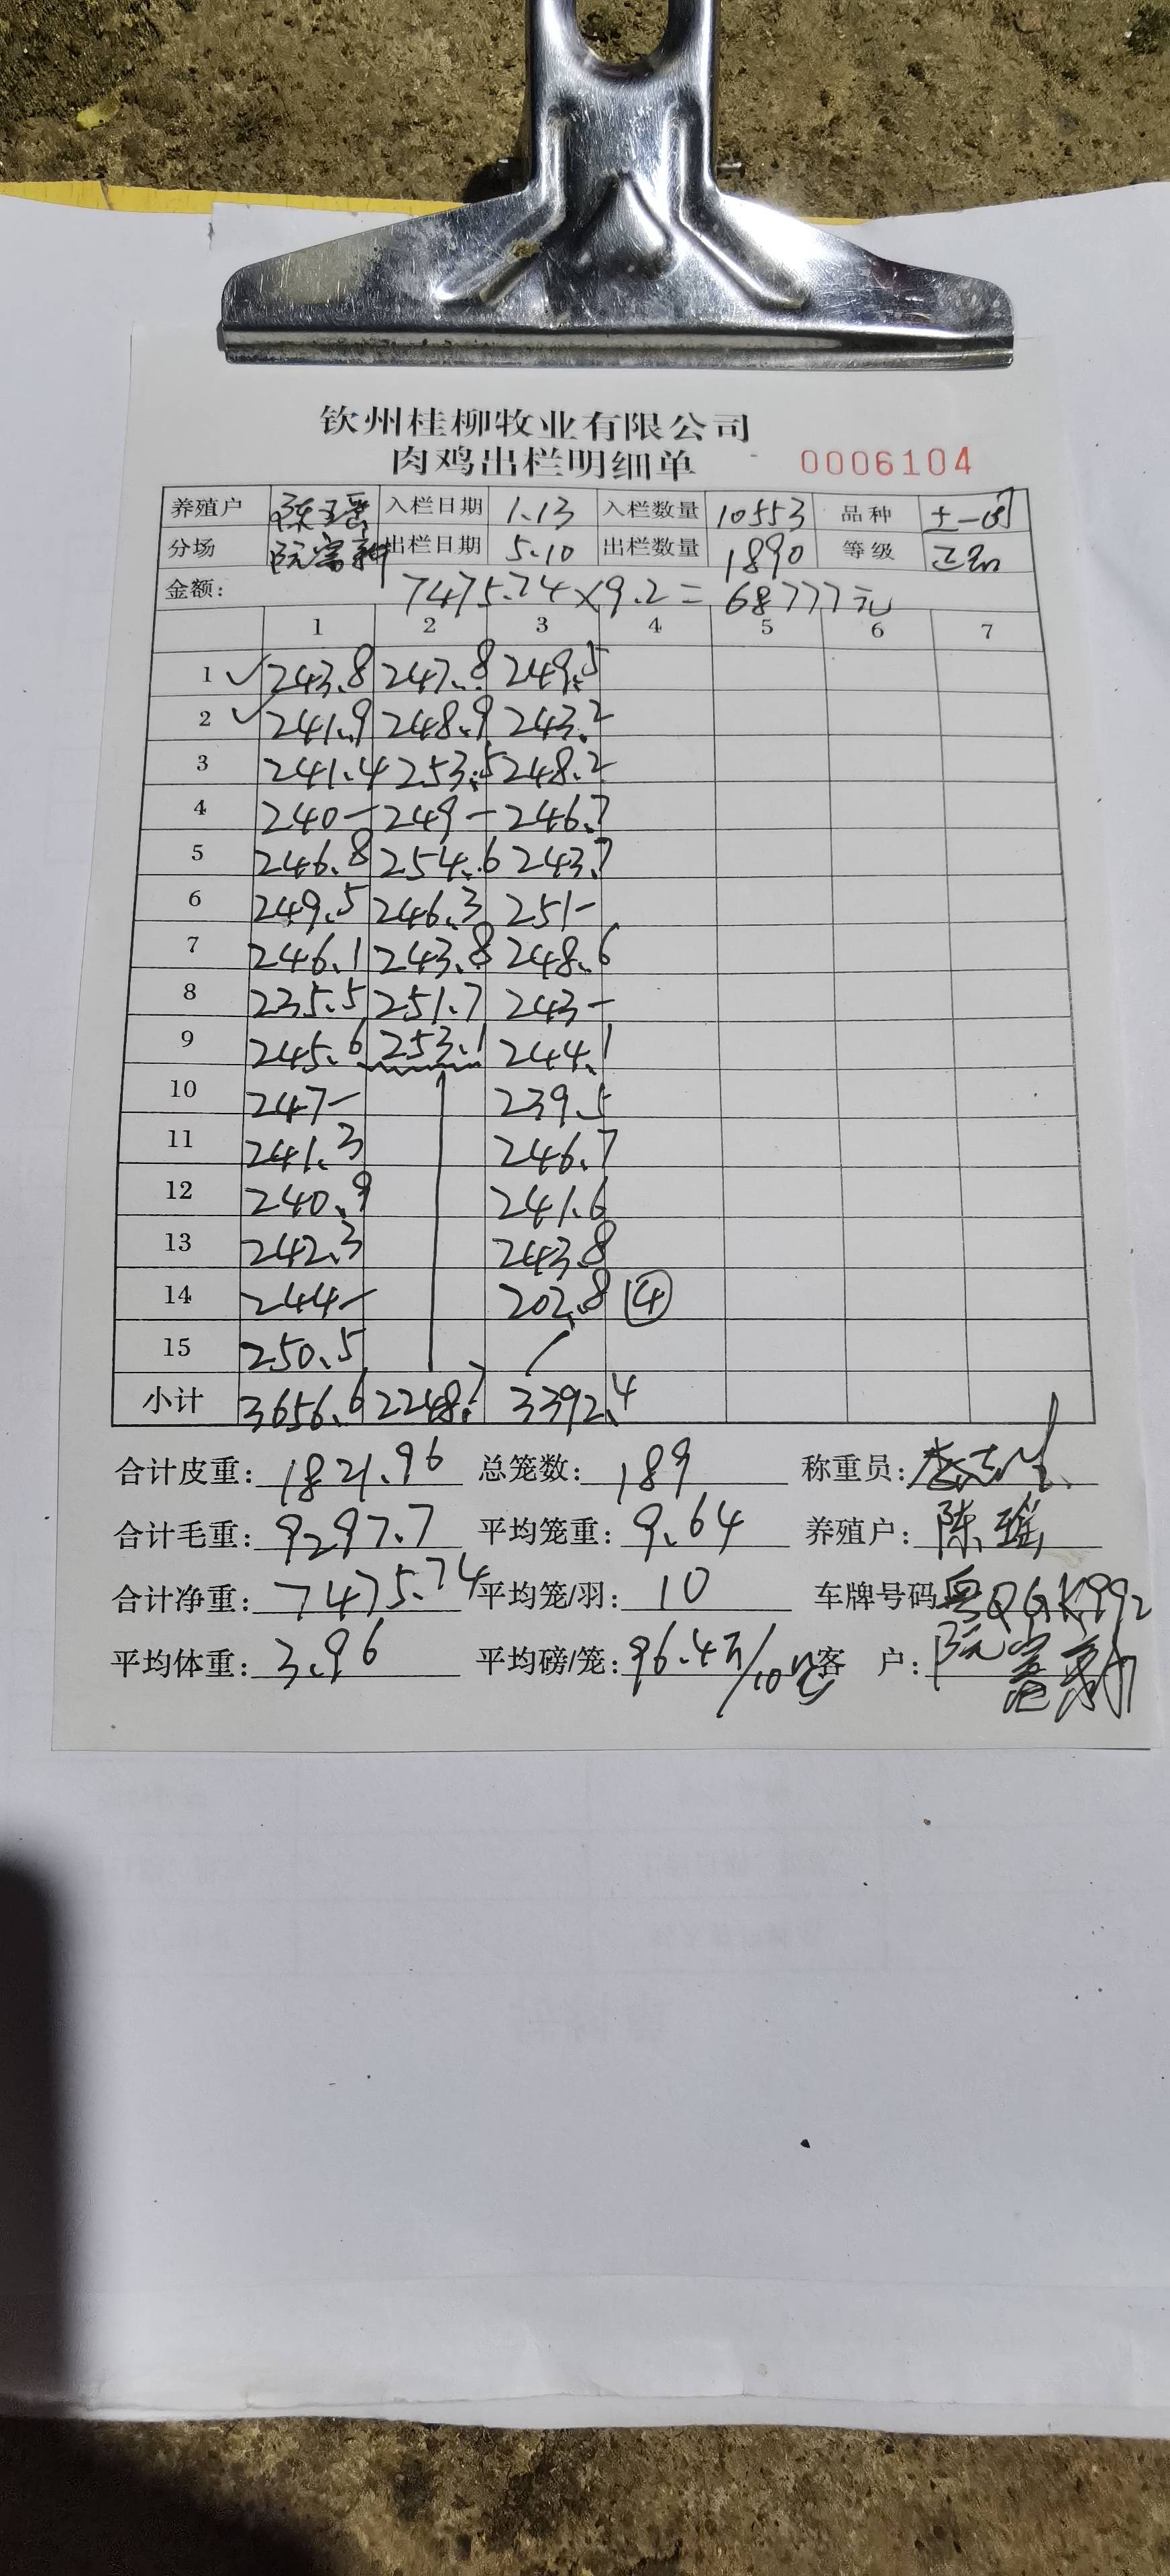 钦州桂柳牧业有限公司
肉鸡出栏明细单 0006104
养殖户 陈瑶 入栏日期 1.13 入栏数量 10553 品种 土一
分场 阮富新 出栏日期 5.10 出栏数量 1890 等级 正品
金额: 7475.74×9.2=68777元
1 2 3 4 5 6 7
1 ✓ 243.8 247.8 249.5
2 ✓ 241.9 248.9 243.2
3 241.4 253.5 248.2
4 240- 249- 246.7
5 246.8 254.6 243.7
6 249.5 246.3 251-
7 246.1 243.8 248.6
8 235.5 251.7 243-
9 245.6 253.1 244.1
10 247- 239.5
11 241.3 246.7
12 240.9 241.6
13 242.3 243.8
14 244- 202.8 ④
15 250.5
小计 3656.6 2248.7 3392.4
合计皮重: 1821.96 总笼数: 189 称重员:
合计毛重: 9297.7 平均笼重: 9.64 养殖户: 陈瑶
合计净重: 7475.74 平均笼/羽: 10 车牌号码 粤QGK992
平均体重: 3.96 平均磅/笼: 96.4斤/10 客 户: 阮富新